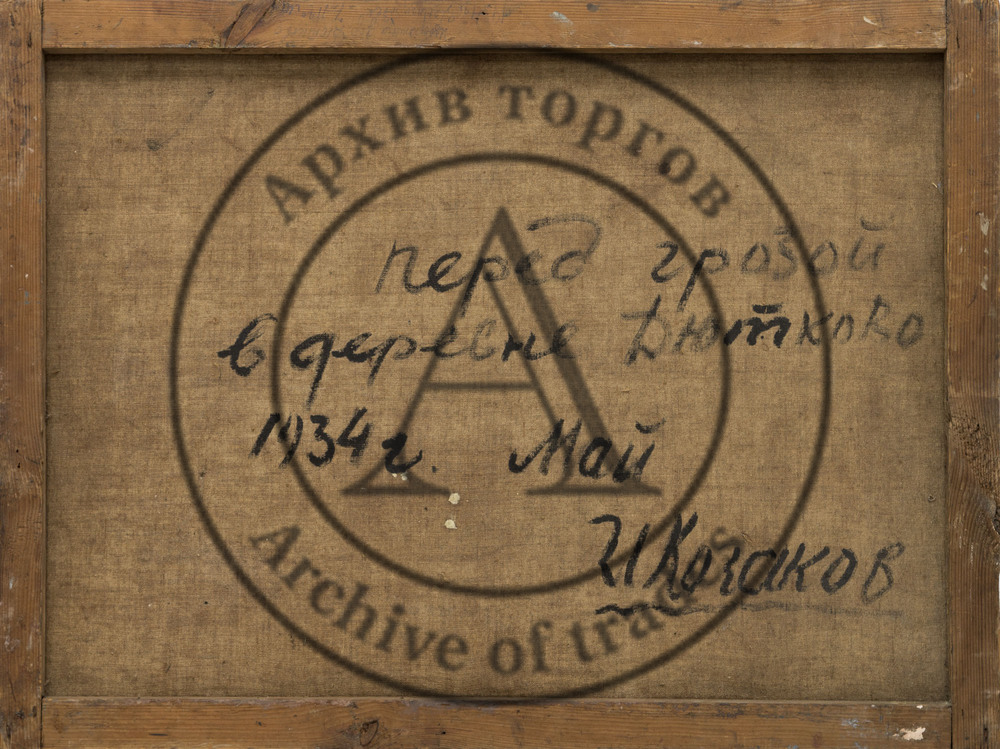 Архив торгов
перед грозой
в деревне Дютково
1934г. Май
И Козаков
Archive of trades